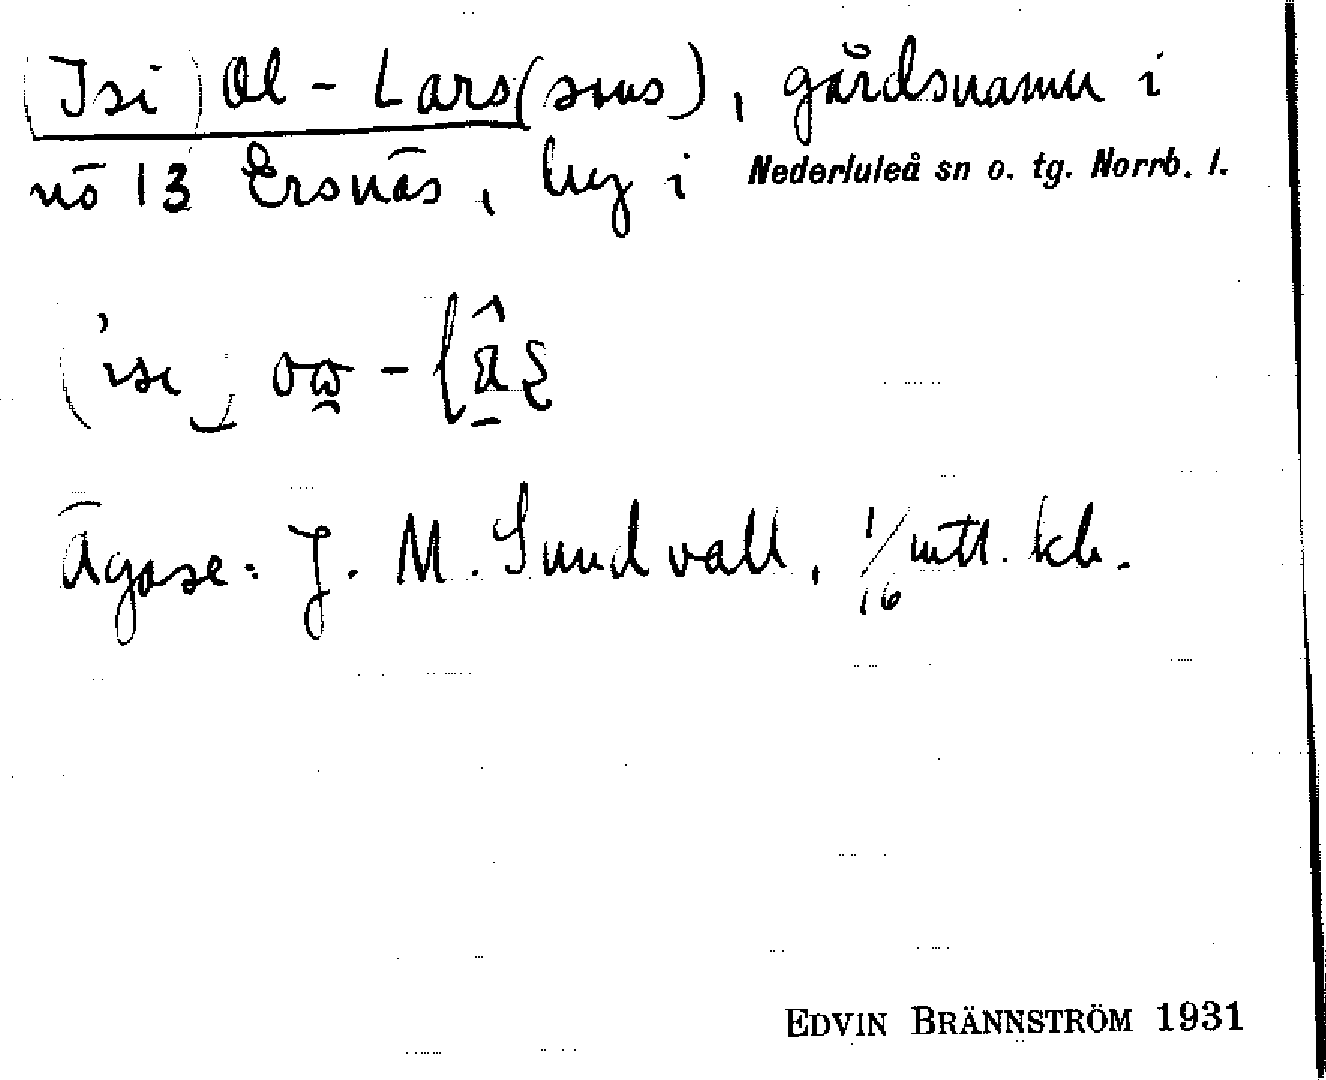 (Isi) Ol-Lars(sons), gårdsnamn i
nō 13 Ersnäs, by i Nederluleå sn o. tg. Norrb. l.
Ägare: J. M. Sundvall, 1/16 mtl. kr.
EDVIN BRÄNNSTRÖM 1931